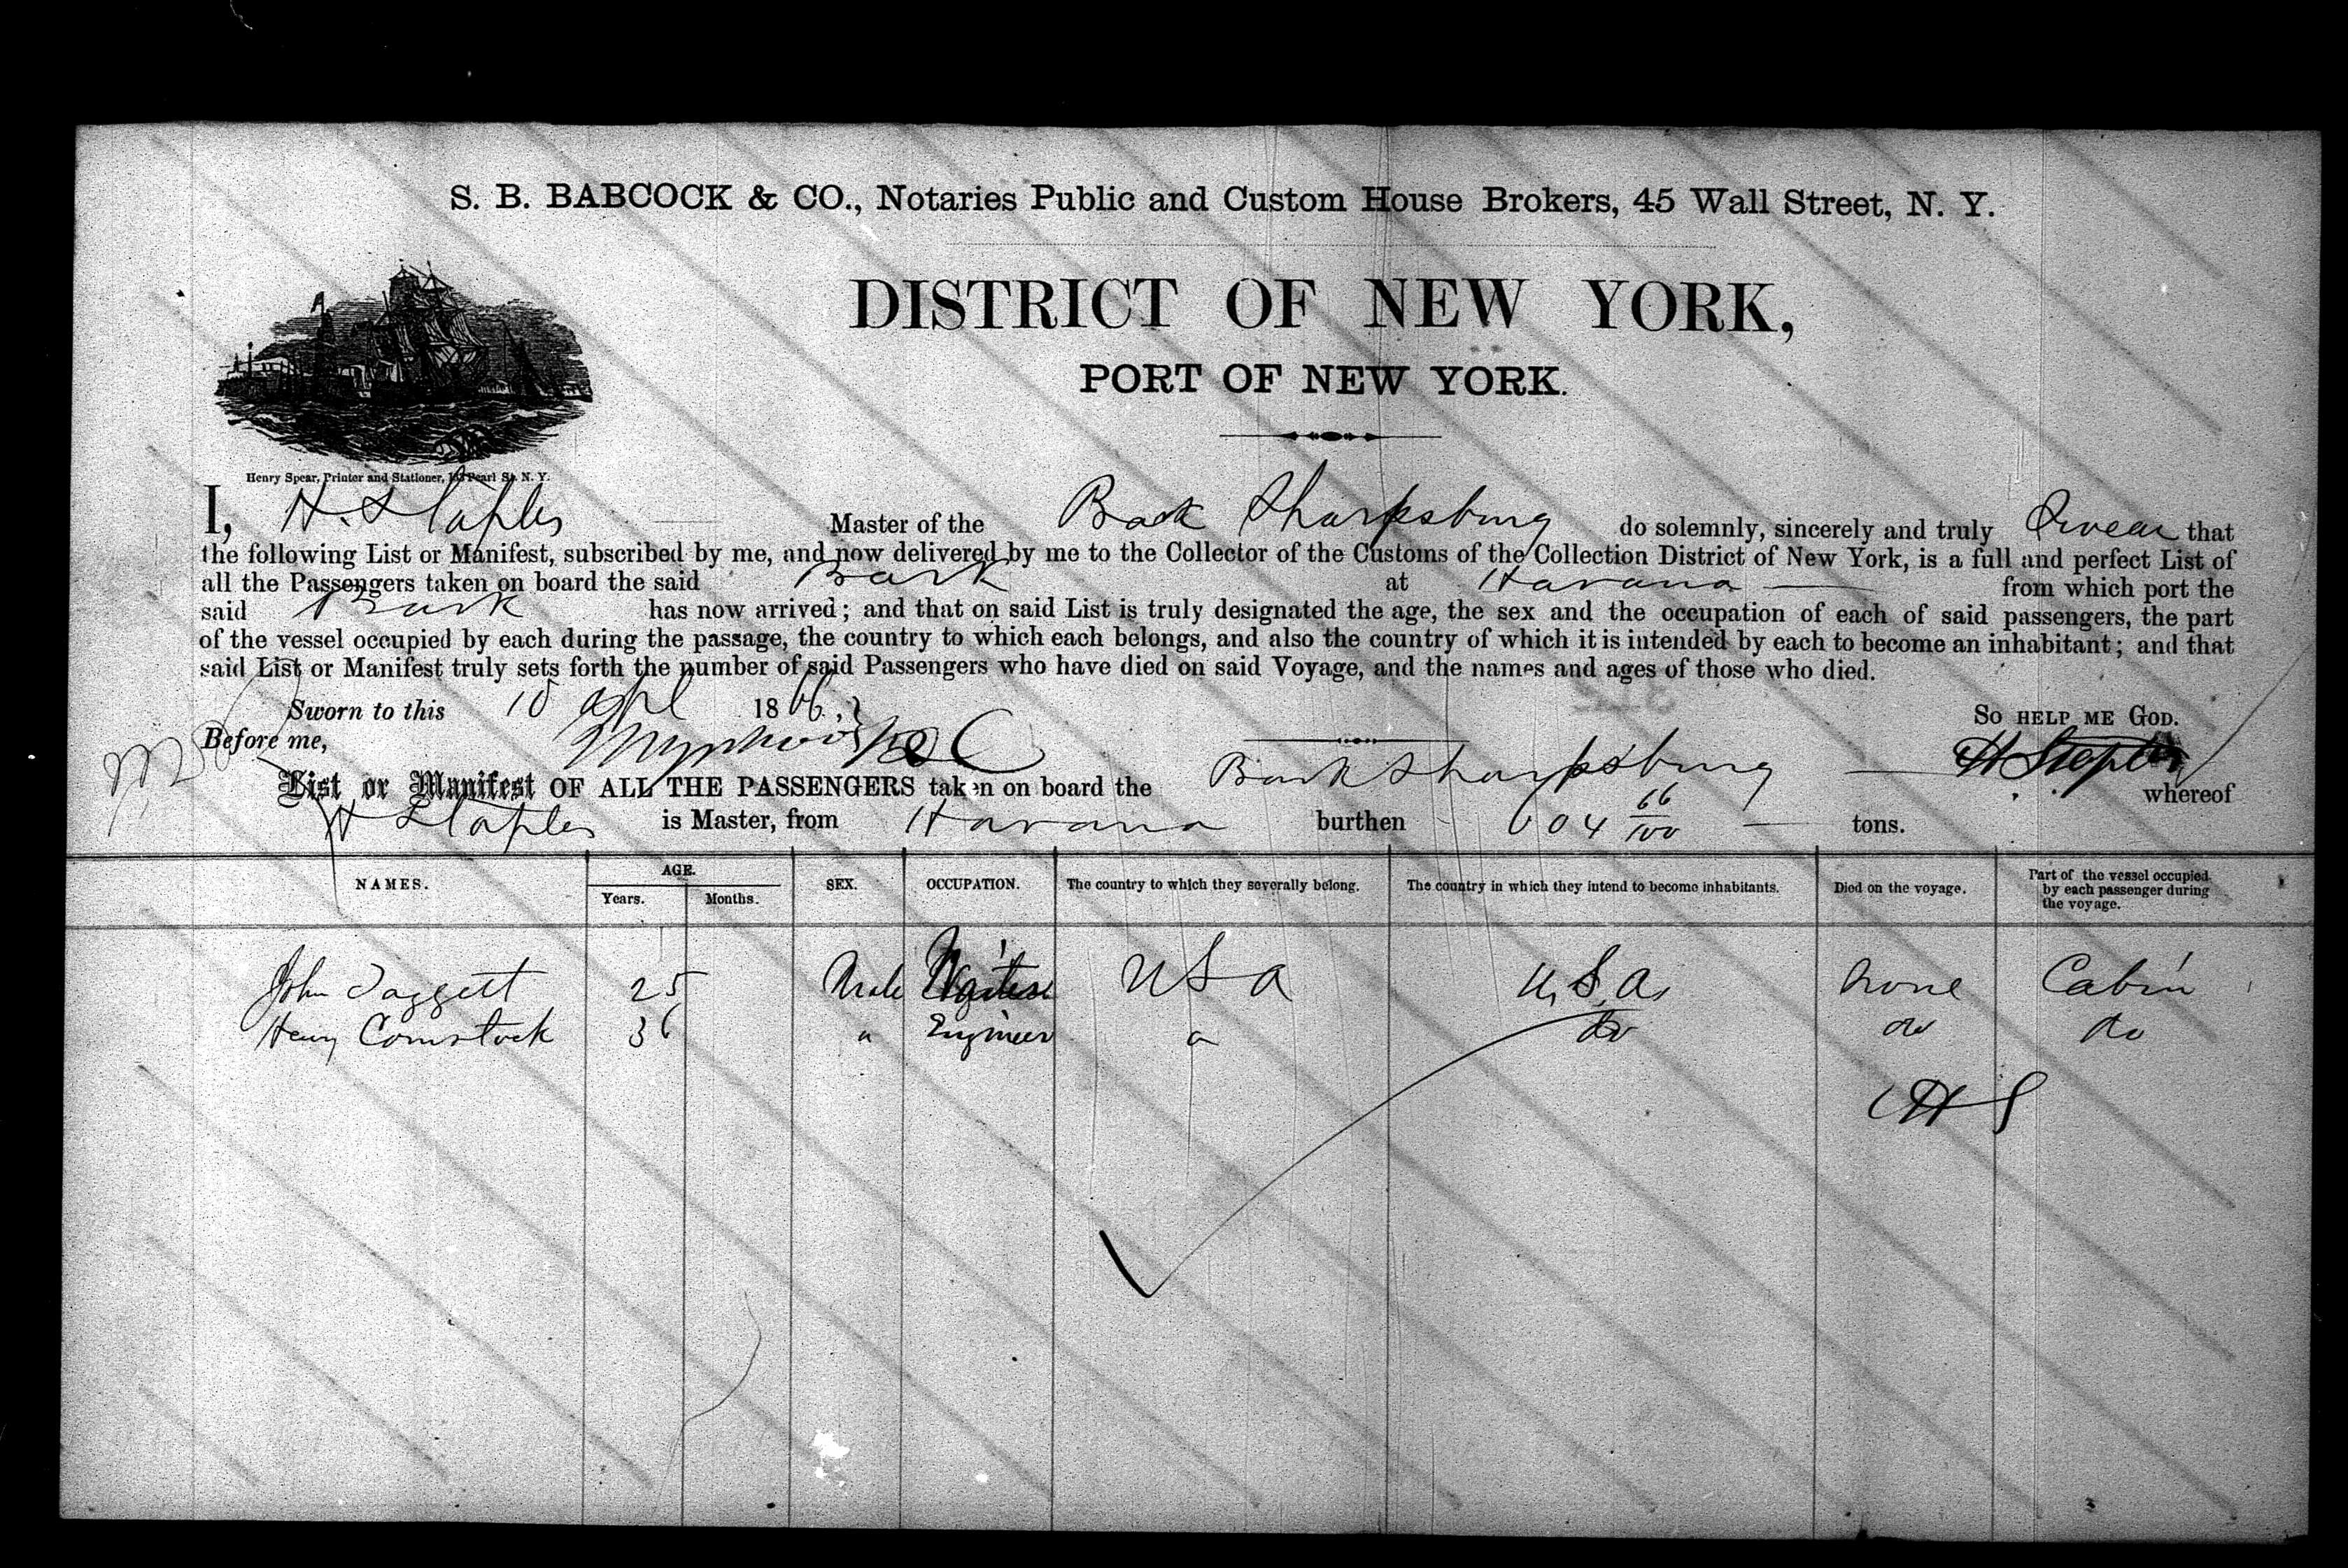 S. B. BABCOCK & CO., Notaries Public and Custom House Brokers, 45 Wall Street, N. Y.
DISTRICT OF NEW YORK,
PORT OF NEW YORK.
Henry Spear, Printer and Stationer, Pearl St. N. Y.
I, H. Staples Master of the Bark Sharpsburg do solemnly, sincerely and truly Swear that
the following List or Manifest, subscribed by me, and now delivered by me to the Collector of the Customs of the Collection District of New York, is a full and perfect List of
all the Passengers taken on board the said Bark at Havana from which port the
said Bark has now arrived; and that on said List is truly designated the age, the sex and the occupation of each of said passengers, the part
of the vessel occupied by each during the passage, the country to which each belongs, and also the country of which it is intended by each to become an inhabitant; and that
said List or Manifest truly sets forth the number of said Passengers who have died on said Voyage, and the names and ages of those who died.
Sworn to this apl 1866. SO HELP ME GOD.
Before me, H Staples
List or Manifest OF ALL THE PASSENGERS taken on board the Bark Sharpsburg whereof
H Staples is Master, from Havana burthen 604 66/100 tons.
NAMES. AGE. Years. Months. SEX. OCCUPATION. The country to which they severally belong. The country in which they intend to become inhabitants. Died on the voyage. Part of the vessel occupied by each passenger during the voyage.
John Daggett 25 Male USA U.S.A. None Cabin
Henry Comstock 36 " Engineer " do do do
HS